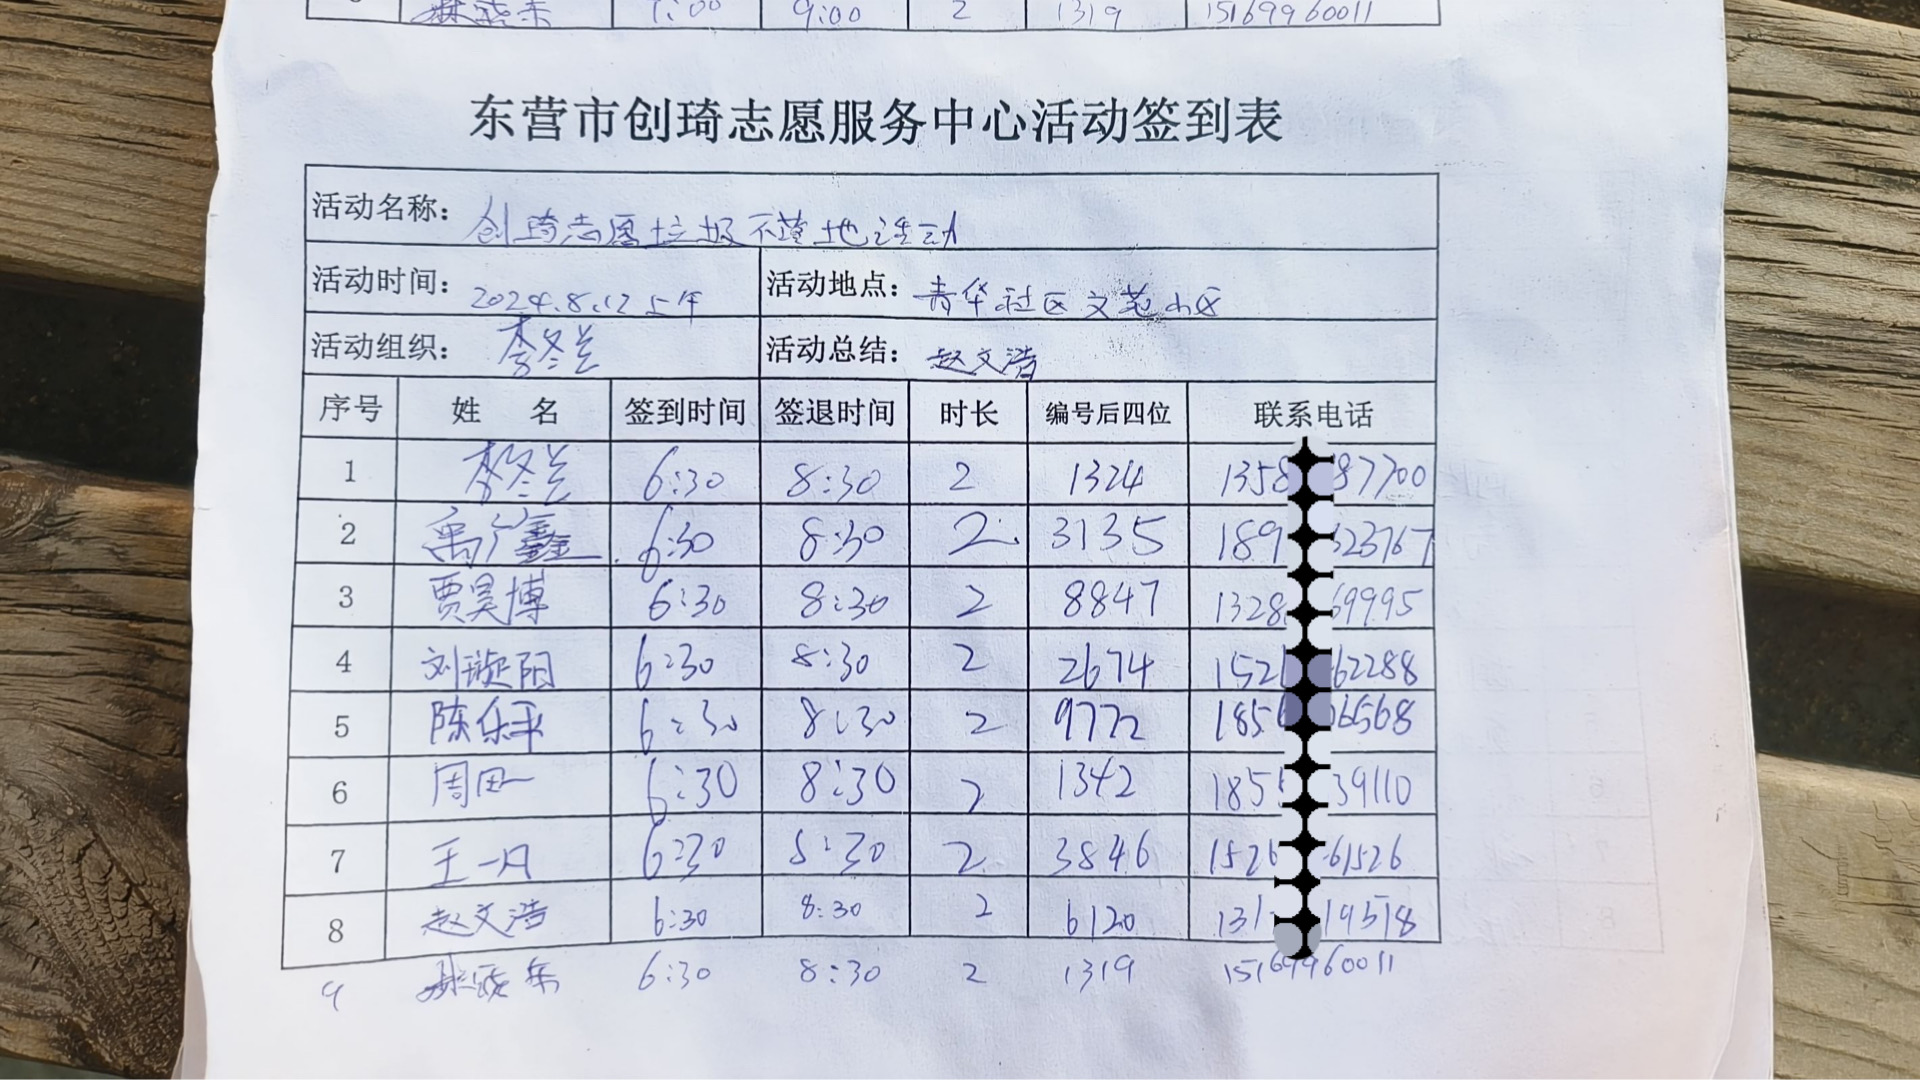 7:00 9:00 2 1319 15169960011
东营市创琦志愿服务中心活动签到表
活动名称： 创琦志愿垃圾不落地活动
活动时间： 2024.8.12上午 活动地点： 青华社区文苑小区
活动组织： 李冬兰 活动总结： 赵文浩
序号 姓 名 签到时间 签退时间 时长 编号后四位 联系电话
1 李冬兰 6:30 8:30 2 1324 1358 87700
2 禹广鑫 6:30 8:30 2 3135 189 323767
3 贾昊博 6:30 8:30 2 8847 1328 69995
4 刘璇阳 6:30 8:30 2 2674 152 62288
5 陈乐平 6:30 8:30 2 9772 185 06568
6 周 6:30 8:30 2 1342 185 39110
7 王一凡 6:30 8:30 2 3846 1526 61526
8 赵文浩 6:30 8:30 2 6120 131 19518
9 6:30 8:30 2 1319 15169960011